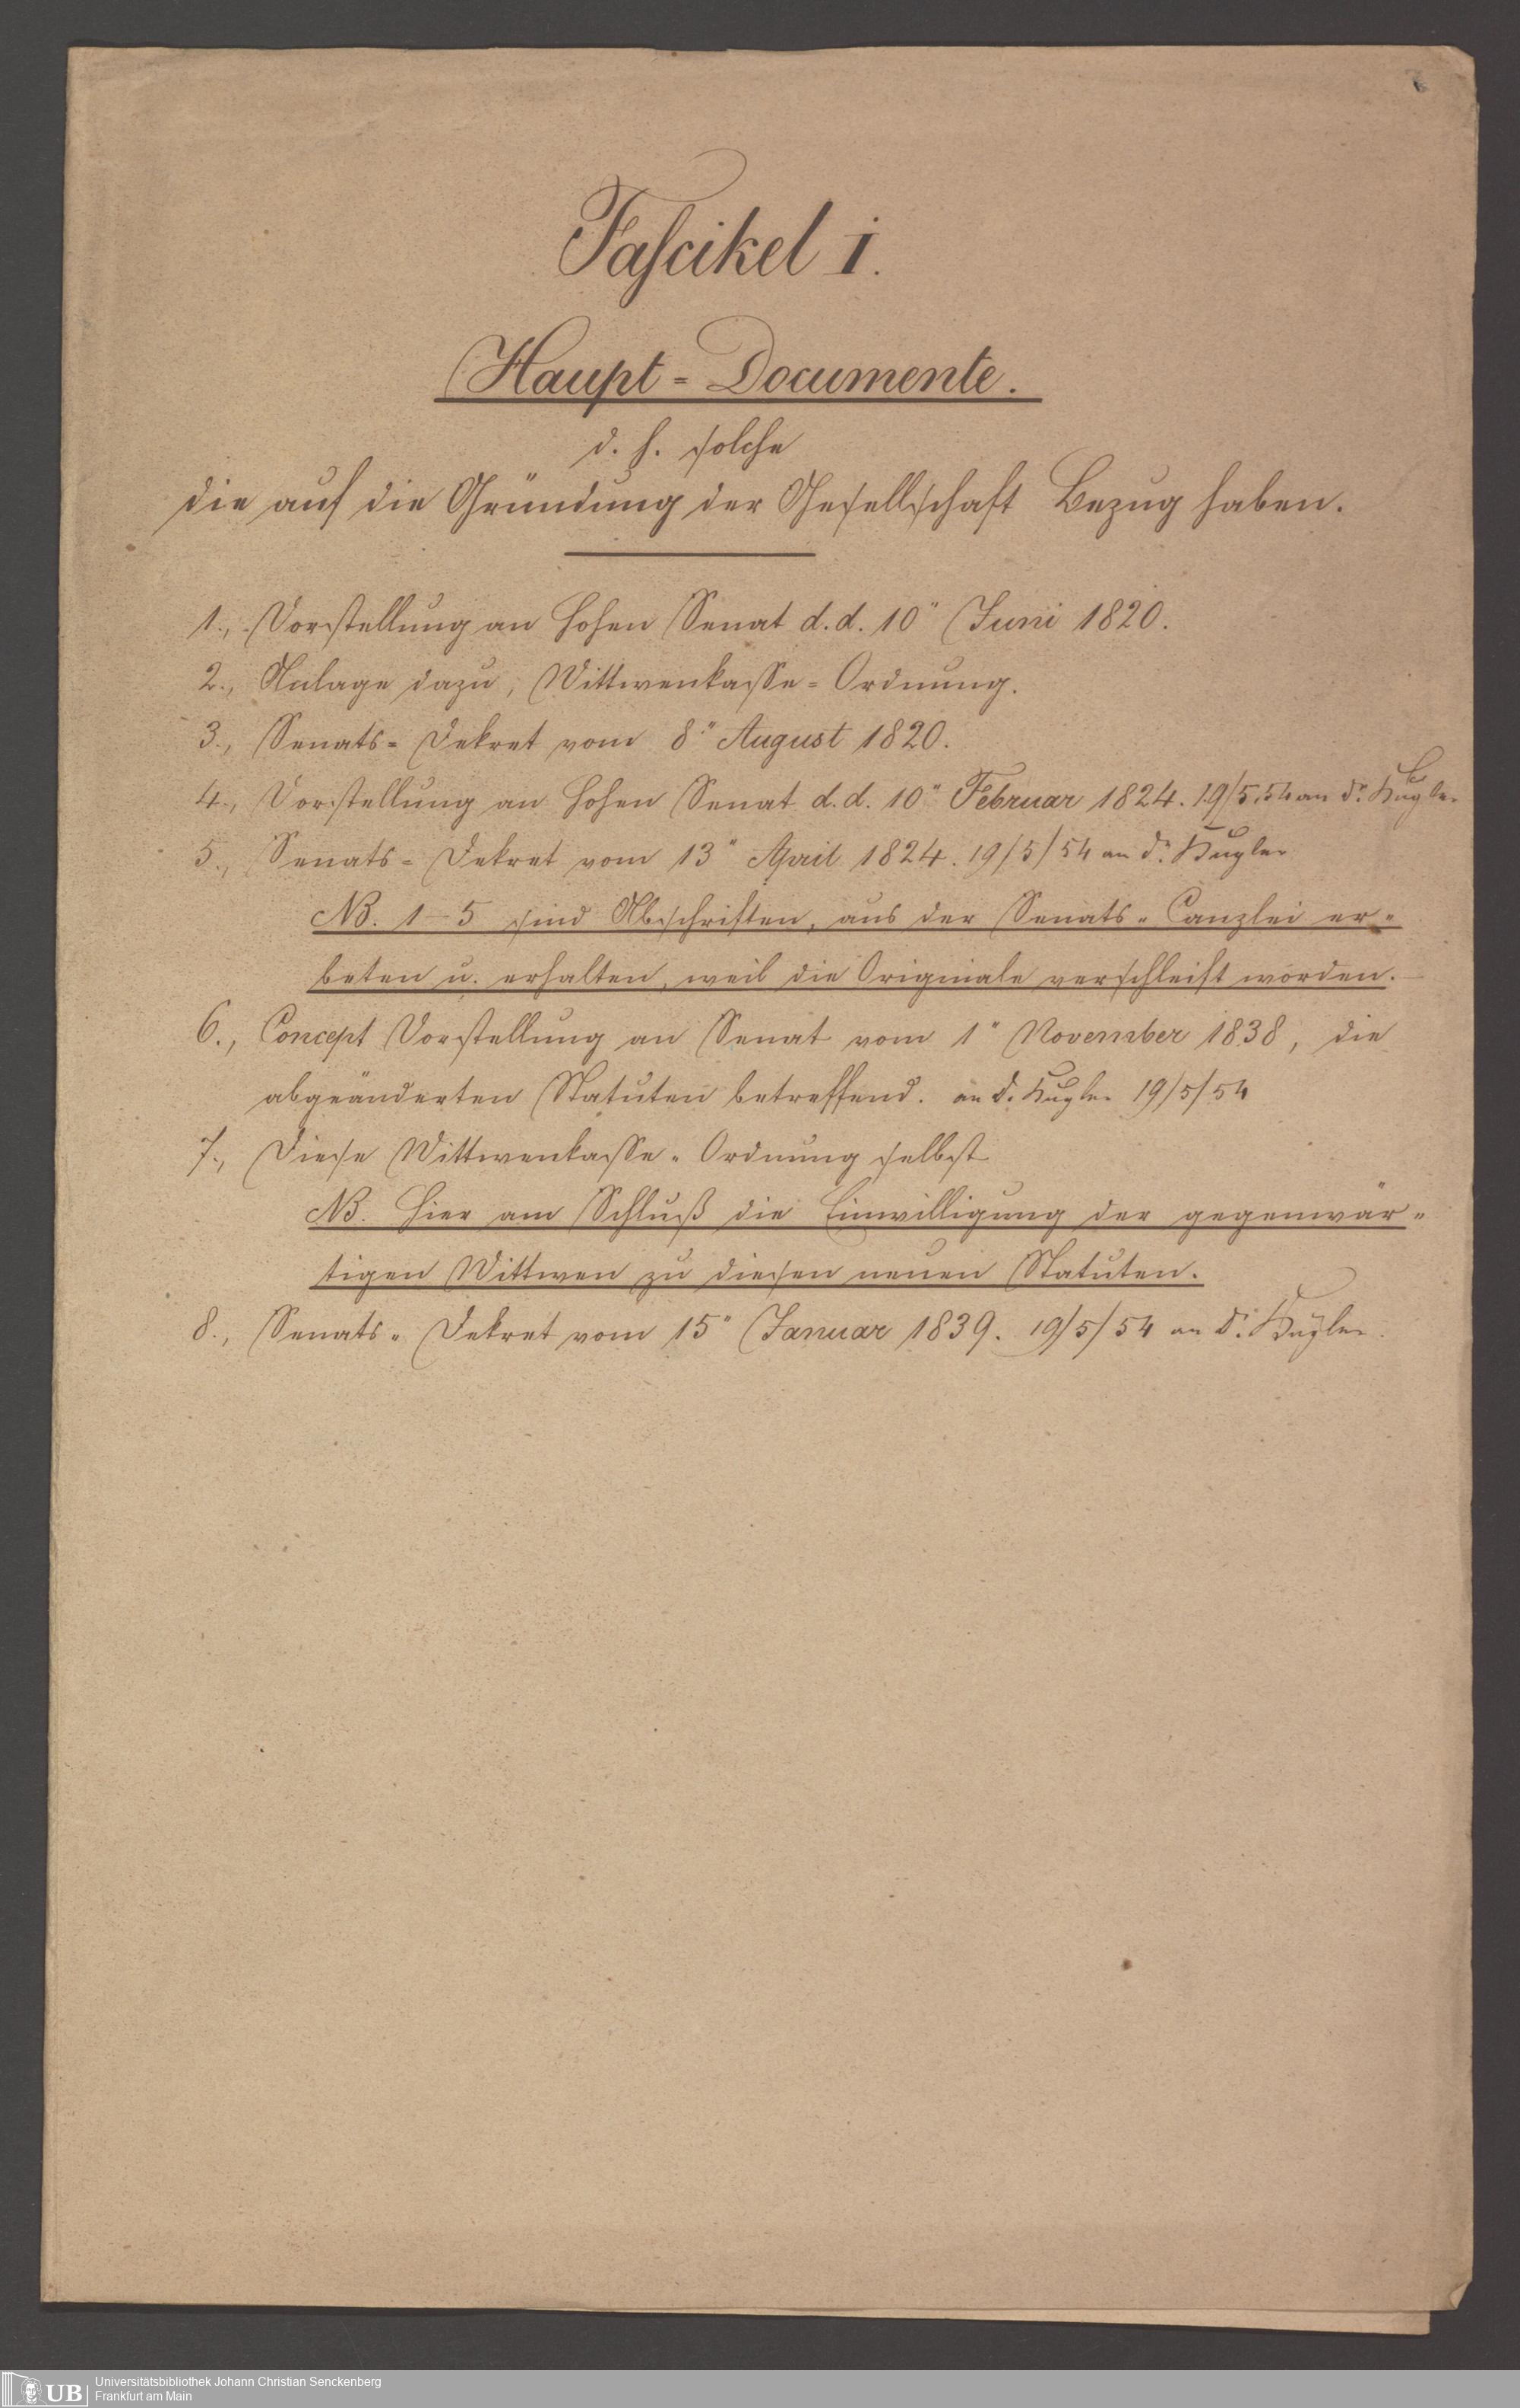 Fascikel I.
Haupt-Documente.
d. h. solche
die auf die Gründung der Gesellschaft Bezug haben.
1., Vorstellung an hohen Senat d. d. 10" Juni 1820.
2., Anlage dazu, Wittwenkasse-Ordnung.
3., Senats-Dekret vom 8" August 1820.
4., Vorstellung an hohen Senat d. d. 10" Februar 1824. 19/5 54 an Dr. Kugler
5., Senats-Dekret vom 13" April 1824. 19/5/54 an Dr. Kugler
NB. 1–5 sind Abschriften, aus der Senats-Canzlei er-
beten u. erhalten, weil die Originale verschleift worden.
6., Concept Vorstellung an Senat vom 1" November 1838, die
abgeänderten Statuten betreffend. an D. Kugler 19/5/54
7., Diese Wittwenkasse-Ordnung selbst
NB. Hier am Schluß die Einwilligung der gegenwär-
tigen Wittwen zu diesen neuen Statuten.
8., Senats-Dekret vom 15" Januar 1839. 19/5/54 an Dr. Kugler.
UB Universitätsbibliothek Johann Christian Senckenberg
Frankfurt am Main